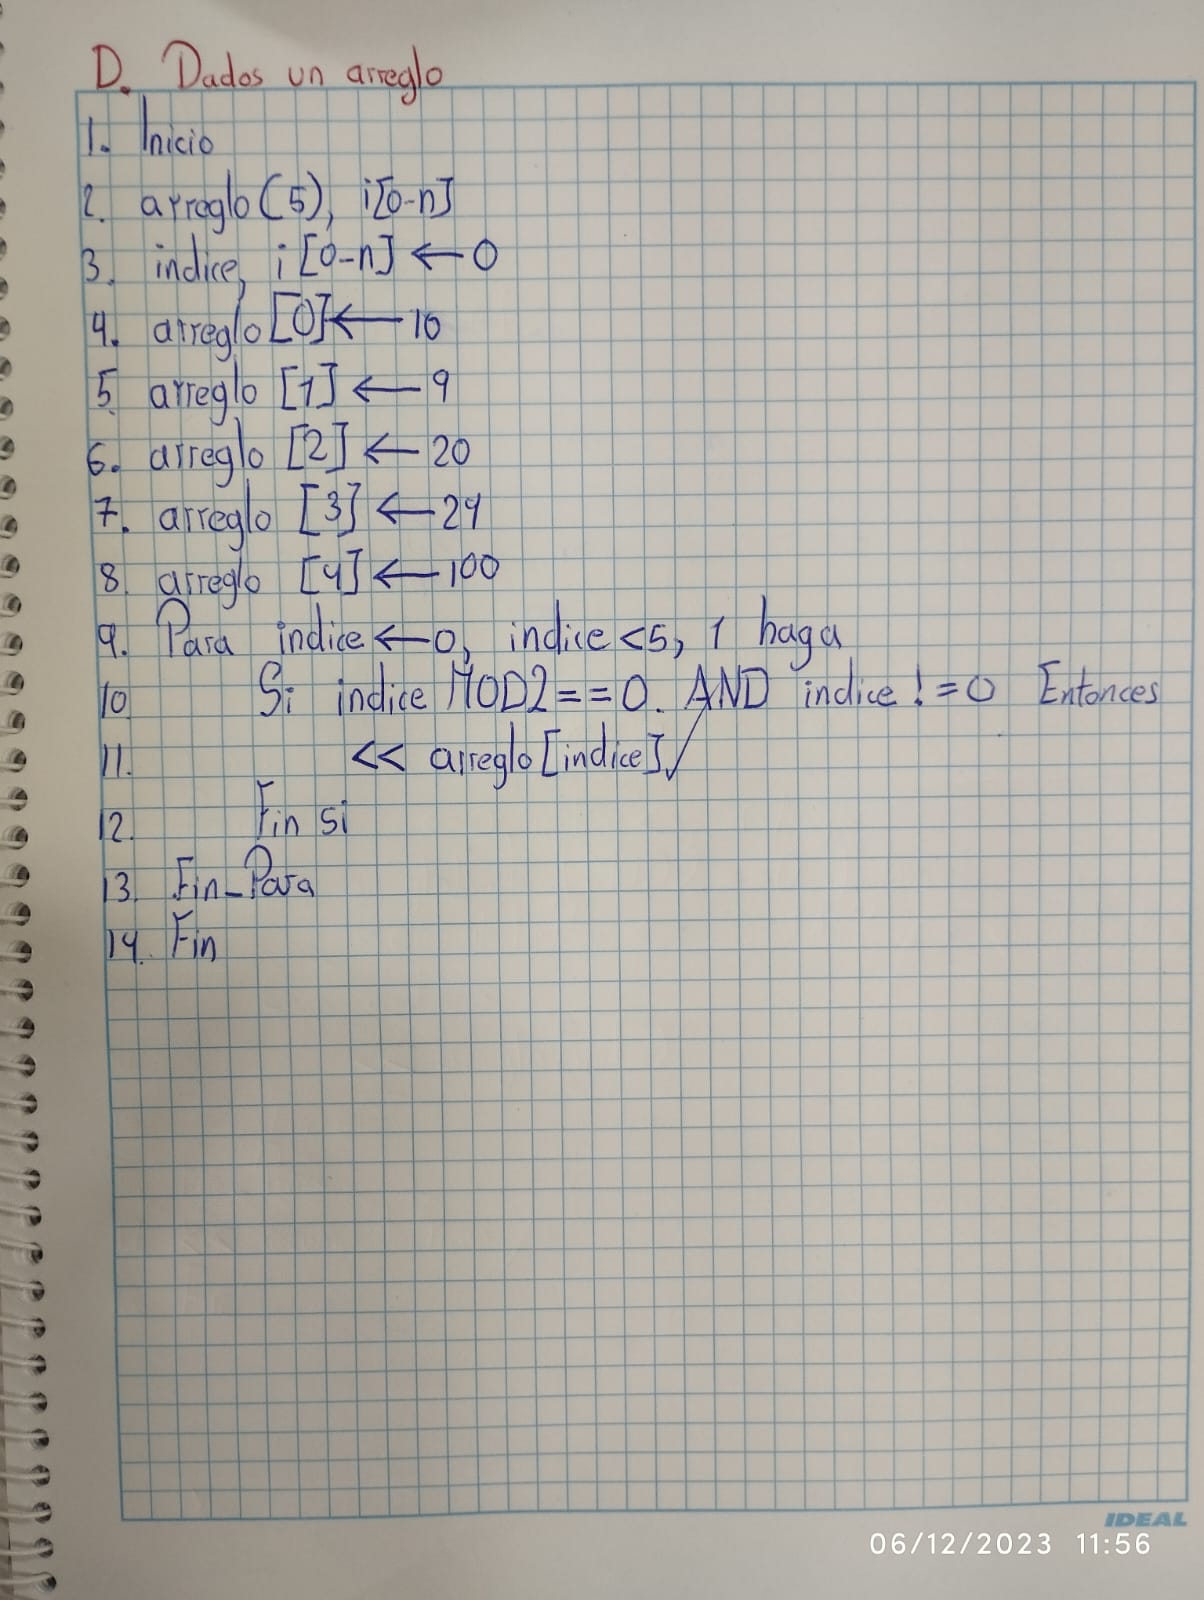 D. Dados un arreglo
1. Inicio
2. arreglo(5), i[0-n]
3. indice, i[0-n] ← 0
4. arreglo [0] ← 10
5. arreglo [1] ← 9
6. arreglo [2] ← 20
7. arreglo [3] ← 24
8. arreglo [4] ← 100
9. Para indice ← 0, indice <5, 1 haga
10. Si indice MOD2 == 0. AND indice != 0 Entonces
11. << arreglo [indice]
12. Fin si
13. Fin-Para
14. Fin
IDEAL
06/12/2023 11:56